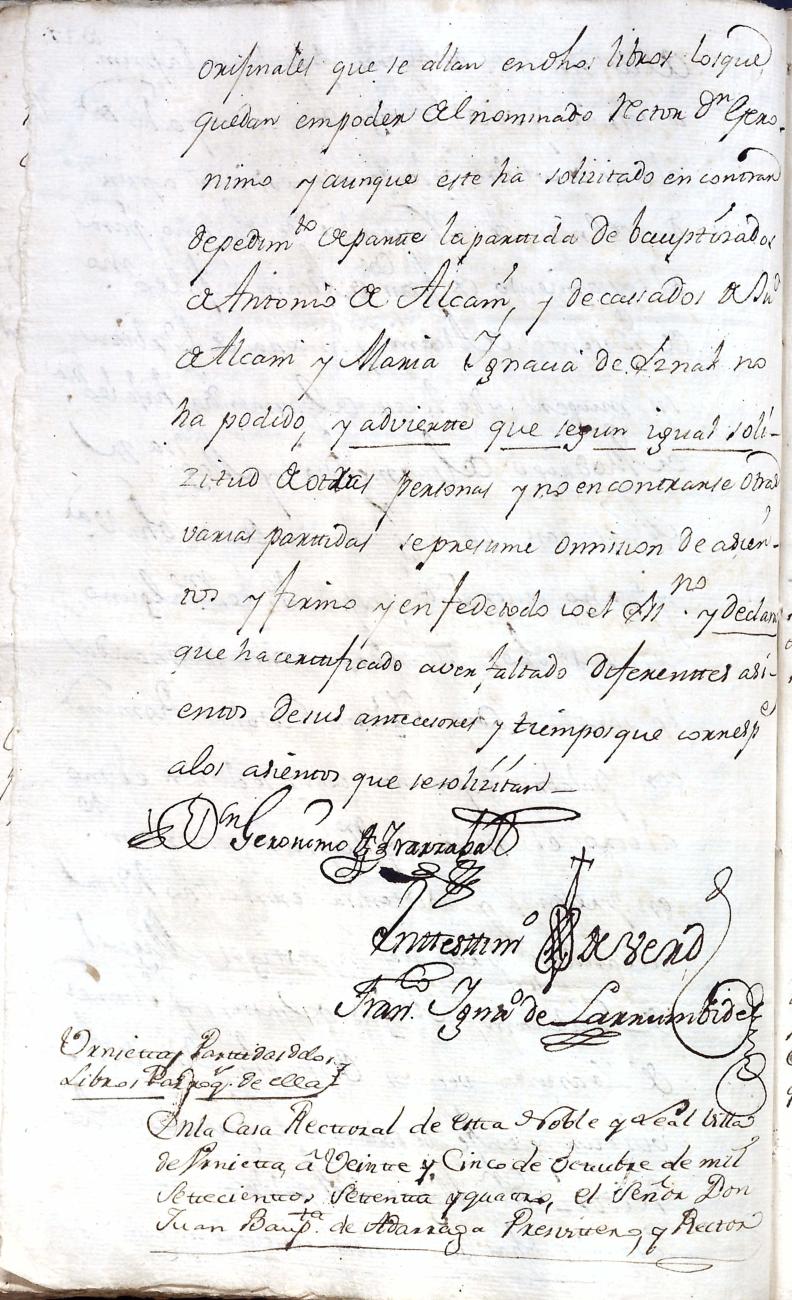 orijinales que se allan en dhos libros los que
quedan empoder del nominado Rector Dn Gero-
nimo y aunque este ha solizitado encontrar
depedimto de parte la partida de bauptizados
de Antonio de Alcain, y de cassados de
de Alcain y Maria Ignacia de no
ha podido, y adviertte que segun igual soli-
zitud de otras personas y no encontrarse otras
varias parttidas se presume ommision de asien-
tos y firmo y en fe de todo io el no y declara
que ha certificado aver faltado diferenttes asi-
entos de sus antecesores y tiempos que corresp e
a los asientos que se solizitan
Dn Geronimo de Yrarzabal
En ttesttimo de verd
Franco Ignao de Larrumbide
Urnietta, Parttidas de los
Libros Parroq. de ella
En la Casa Recttoral de estta Noble y Leal Villa
de Urnietta, â Veintte y Cinco de Octtubre de mil
Settecienttos, Settentta y quattro, el Señor Don
Juan Baupta. de Adarraga Presvittero, y Rector